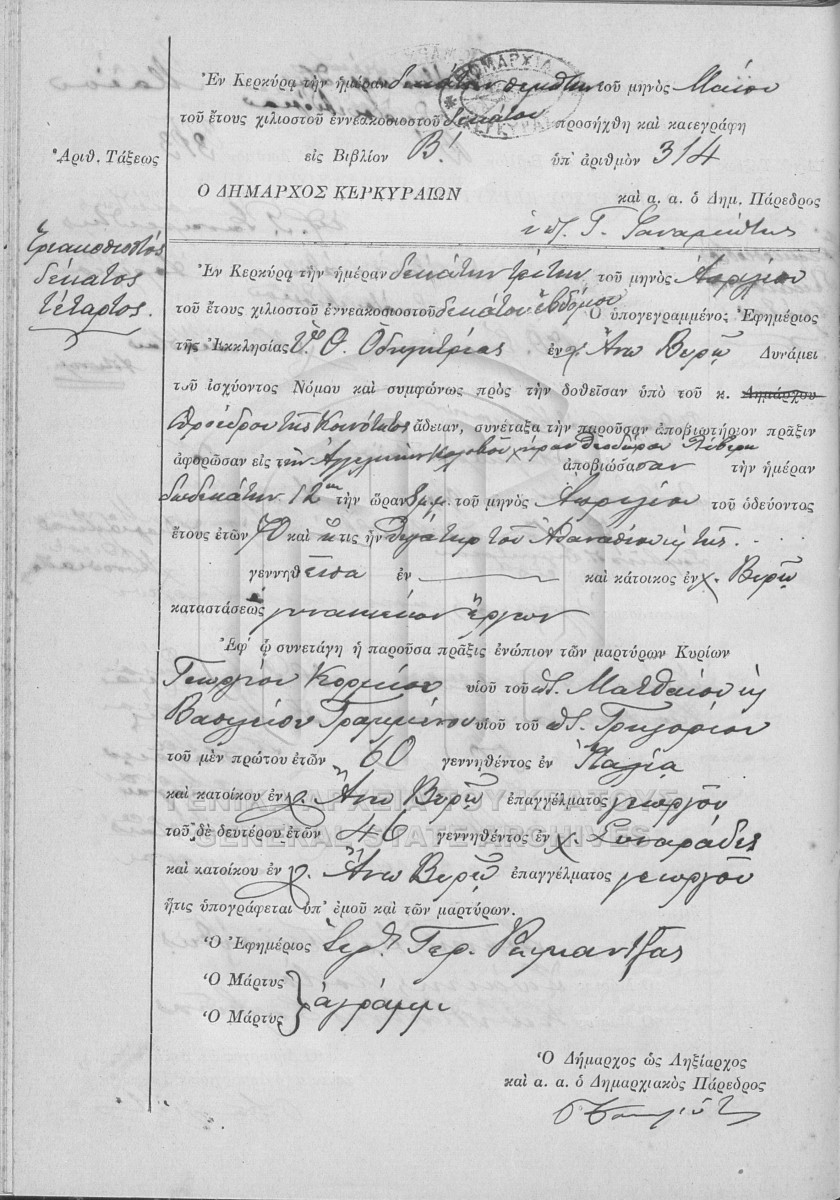 Ἐν Κερκύρᾳ τὴν ἡμέραν δεκάτην τοῦ μηνὸς Μαΐου
τοῦ ἔτους χιλιοστοῦ ἐννεακοσιοστοῦ δεκάτου προσήχθη καὶ κατεγράφη
Ἀριθ. Τάξεως
εἰς Βιβλίον Β! ὑπ' ἀριθμὸν 314
Ο ΔΗΜΑΡΧΟΣ ΚΕΡΚΥΡΑΙΩΝ
καὶ α. α. ὁ Δημ. Πάρεδρος
Γ.
Τριακοσιοστός
δέκατος
τέταρτος.
Ἐν Κερκύρᾳ τὴν ἡμέραν δεκάτην τρίτην τοῦ μηνὸς Ἀπριλίου
τοῦ ἔτους χιλιοστοῦ ἐννεακοσιοστοῦ δεκάτου ἑβδόμου Ὁ ὑπογεγραμμένος Ἐφημέριος
τῆς Ἐκκλησίας Ὑ. Θ. Ὁδηγητρίας ἐν χ. Ἄνω Βυρῷ Δυνάμει
τοῦ ἰσχύοντος Νόμου καὶ συμφώνως πρὸς τὴν δοθεῖσαν ὑπὸ τοῦ κ. Δημάρχου
Προέδρου τῆς Κοινότητος ἄδειαν, συνέταξα τὴν παροῦσαν ἀποβιωτήριον πρᾶξιν
ἀφορῶσαν εἰς τὴν Ἀγγελικὴν χήραν Θεοδώρου ἀποβιώσασαν τὴν ἡμέραν
δωδεκάτην 12ην τὴν ὥραν τοῦ μηνὸς Ἀπριλίου τοῦ ὁδεύοντος
ἔτους ἐτῶν 70 καὶ ἥτις ἦν θυγάτηρ τοῦ Ἀθανασίου κ τῆς . .
γεννηθεῖσα ἐν — καὶ κάτοικος ἐν χ. Βυρῷ
καταστάσεως γυναικείων ἔργων
Ἐφ' ᾧ συνετάγη ἡ παροῦσα πρᾶξις ἐνώπιον τῶν μαρτύρων Κυρίων
Γεωργίου υἱοῦ τοῦ ποτ. Ματθαίου κ
Βασιλείου Γραμμένου υἱοῦ τοῦ ποτ. Γρηγορίου
τοῦ μὲν πρώτου ἐτῶν 60 γεννηθέντος ἐν Ἰταλίᾳ
καὶ κατοίκου ἐν χ. Ἄνω Βυρῷ ἐπαγγέλματος γεωργοῦ
ΓΕΝΙΚΑ ΑΡΧΕΙΑ ΤΟΥ ΚΡΑΤΟΥΣ
τοῦ δὲ δευτέρου ἐτῶν 46 γεννηθέντος ἐν χ. Συναράδες
GENERAL STATE ARCHIVES
καὶ κατοίκου ἐν χ. Ἄνω Βυρῷ ἐπαγγέλματος γεωργοῦ
ἥτις ὑπογράφεται ὑπ' ἐμοῦ καὶ τῶν μαρτύρων.
Ὁ Ἐφημέριος
Ὁ Μάρτυς
Ὁ Μάρτυς } ἀγράμμ
Ὁ Δήμαρχος ὡς Ληξίαρχος
καὶ α. α. ὁ Δημαρχιακὸς Πάρεδρος